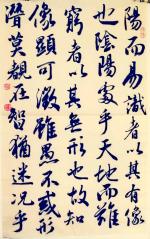 陽而易識者以其有像
也陰陽處乎天地而難
窮者以其無形也故知
像顯可徵雖愚不惑形
潛莫覩在智猶迷況乎